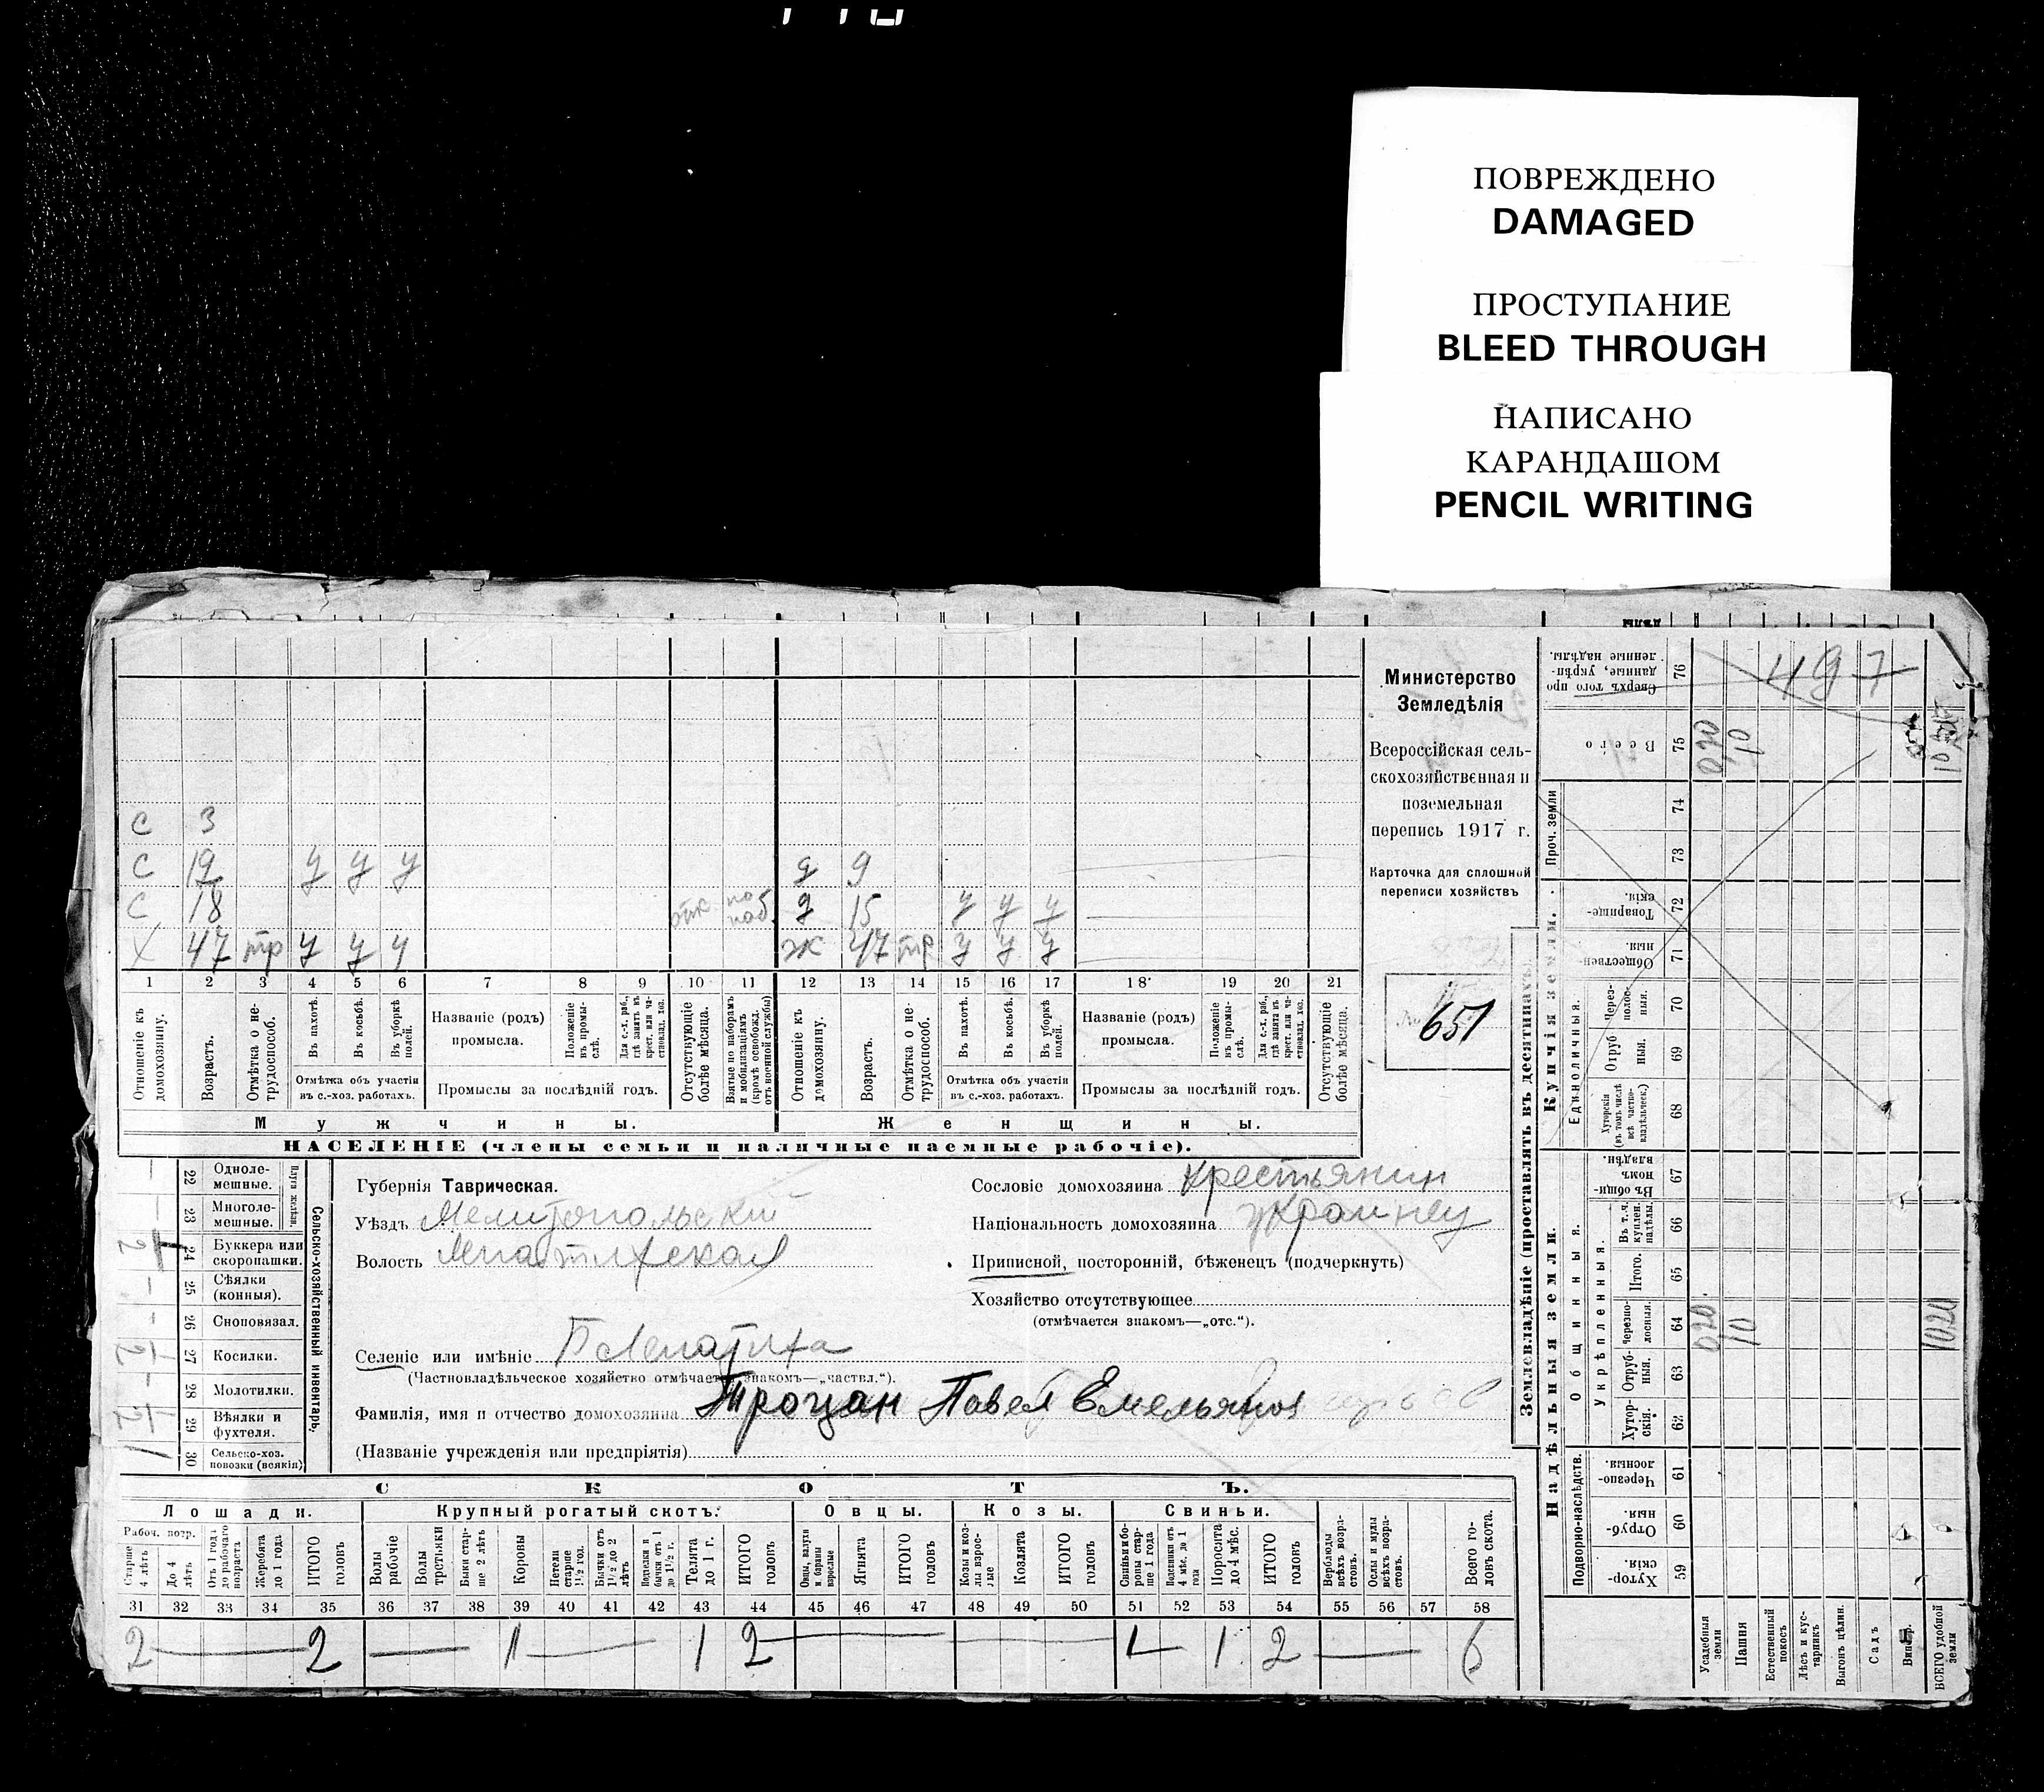 ПОВРЕЖДЕНО
DAMAGED
ПРОСТУПАНИЕ
BLEED THROUGH
НАПИСАНО
КАРАНДАШОМ
PENCIL WRITING
Министерство
Земледѣлія
Всероссійская сель-
скохозяйственная и
поземельная
перепись 1917 г.
Карточка для сплошной
переписи хозяйствъ
651
с 3
с 19 у у у д 9
с 18 отк по наб. д 15 у у у
х 47 тр у у у ж 47 тр у у у
1 2 3 4 5 6 7 8 9 10 11 12 13 14 15 16 17 18 19 20 21
Отношеніе къ домохозяину.
Возрастъ.
Отмѣтка о не-трудоспособ.
Въ пахотѣ.
Въ косьбѣ.
Въ уборкѣ полей.
Отмѣтка объ участіи
въ с.-хоз. работахъ.
Названіе (родъ)
промысла.
Положеніе въ промыслѣ.
Для с.-х. раб., гдѣ занятъ въ крест. или частновлад. хоз.
Промыслы за послѣдній годъ.
Отсутствующіе болѣе мѣсяца.
Взятые по наборамъ и мобилизаціямъ (кромѣ освобожд. отъ военной службы)
Отношеніе къ домохозяину.
Возрастъ.
Отмѣтка о не-трудоспособ.
Въ пахотѣ.
Въ косьбѣ.
Въ уборкѣ полей.
Отмѣтка объ участіи
въ с.-хоз. работахъ.
Названіе (родъ)
промысла.
Положеніе въ промыслѣ.
Для с.-х. раб., гдѣ занята въ крест. или частновлад. хоз.
Промыслы за послѣдній годъ.
Отсутствующіе болѣе мѣсяца.
Мужчины. Женщины.
НАСЕЛЕНІЕ (члены семьи и наличные наемные рабочіе).
Сельско-хозяйственный инвентарь.
Плуги желѣзн.
22 Одноле-мешные.
23 Многоле-мешные.
24 Буккера или скоропашки.
25 Сѣялки (конныя).
26 Сноповязал.
27 Косилки.
28 Молотилки.
29 Вѣялки и фухтеля.
30 Сельско-хоз. повозки (всякія)
Губернія Таврическая.
Уѣздъ Мелитопольский
Волость
Селеніе или имѣніе
(Частновладѣльческое хозяйство отмѣчается знакомъ—„частвл.“).
Фамилія, имя и отчество домохозяина Троцан Павел Емельянов
(Названіе учрежденія или предпріятія)
Сословіе домохозяина крестьянин
Національность домохозяина украинец
Приписной, посторонній, бѣженец (подчеркнуть)
Хозяйство отсутствующее
(отмѣчается знакомъ—„отс.“).
СКОТЪ.
Лошади. Крупный рогатый скотъ. Овцы. Козы. Свиньи.
Рабоч. возр.
Старше 4 лѣтъ
До 4 лѣтъ
Отъ 1 года до рабочаго возраста
Жеребята до 1 года
ИТОГО головъ
Волы рабочіе
Волы третьяки
Быки стар-ше 2 лѣтъ
Коровы
Нетели старше 1½ год.
Бычки отъ 1½ до 2 лѣтъ
Телята до 1 г.
ИТОГО головъ
Овцы, валухи и бараны взрослые
Ягнята
ИТОГО головъ
Козы и коз-лы взрос-лые
Козлята
ИТОГО головъ
Свиньи и бо-ровы стар-ше 1 года
Подсвинки отъ 4 мѣс. до 1 года
Поросята до 4 мѣс.
ИТОГО головъ
Верблюды всѣхъ возра-стовъ.
Ослы и мулы всѣхъ возра-стовъ.
Всего го-ловъ скота.
31 32 33 34 35 36 37 38 39 40 41 42 43 44 45 46 47 48 49 50 51 52 53 54 55 56 57 58
2 2 1 1 2 1 1 2 6
Землевладѣніе (проставлять въ десятинахъ).
Надѣльныя земли.
Купчія земли.
Подворно-наслѣдств.
Общинныя.
Укрѣпленныя.
Единоличныя.
Проч. земли
59 Хутор-скія.
60 Отруб-ныя.
61 Черезпо-лосныя
62 Хутор-скія.
63 Отруб-ныя.
64 Черезпо-лосныя.
65 Итого.
66 Въ т.ч. куплен. надѣлы.
67 Въ общи-номъ владѣн.
68 Хуторскія (въ томъ числѣ всѣ частно-владѣльческ.)
69 Отруб ныя.
70 Через-полос-ныя.
71 Обществен-ныя.
72 Товарище-скія.
73
74
75 Всего
76 Сверхъ того про данные, укрѣп-ленные надѣлы.
497
Усадебныя земли 020 020
Пашня 10 10
Естественный покосъ
Лѣсъ и кус-тарникъ
Выгонъ цѣлин.
Садъ
ВСЕГО удобной земли 1020